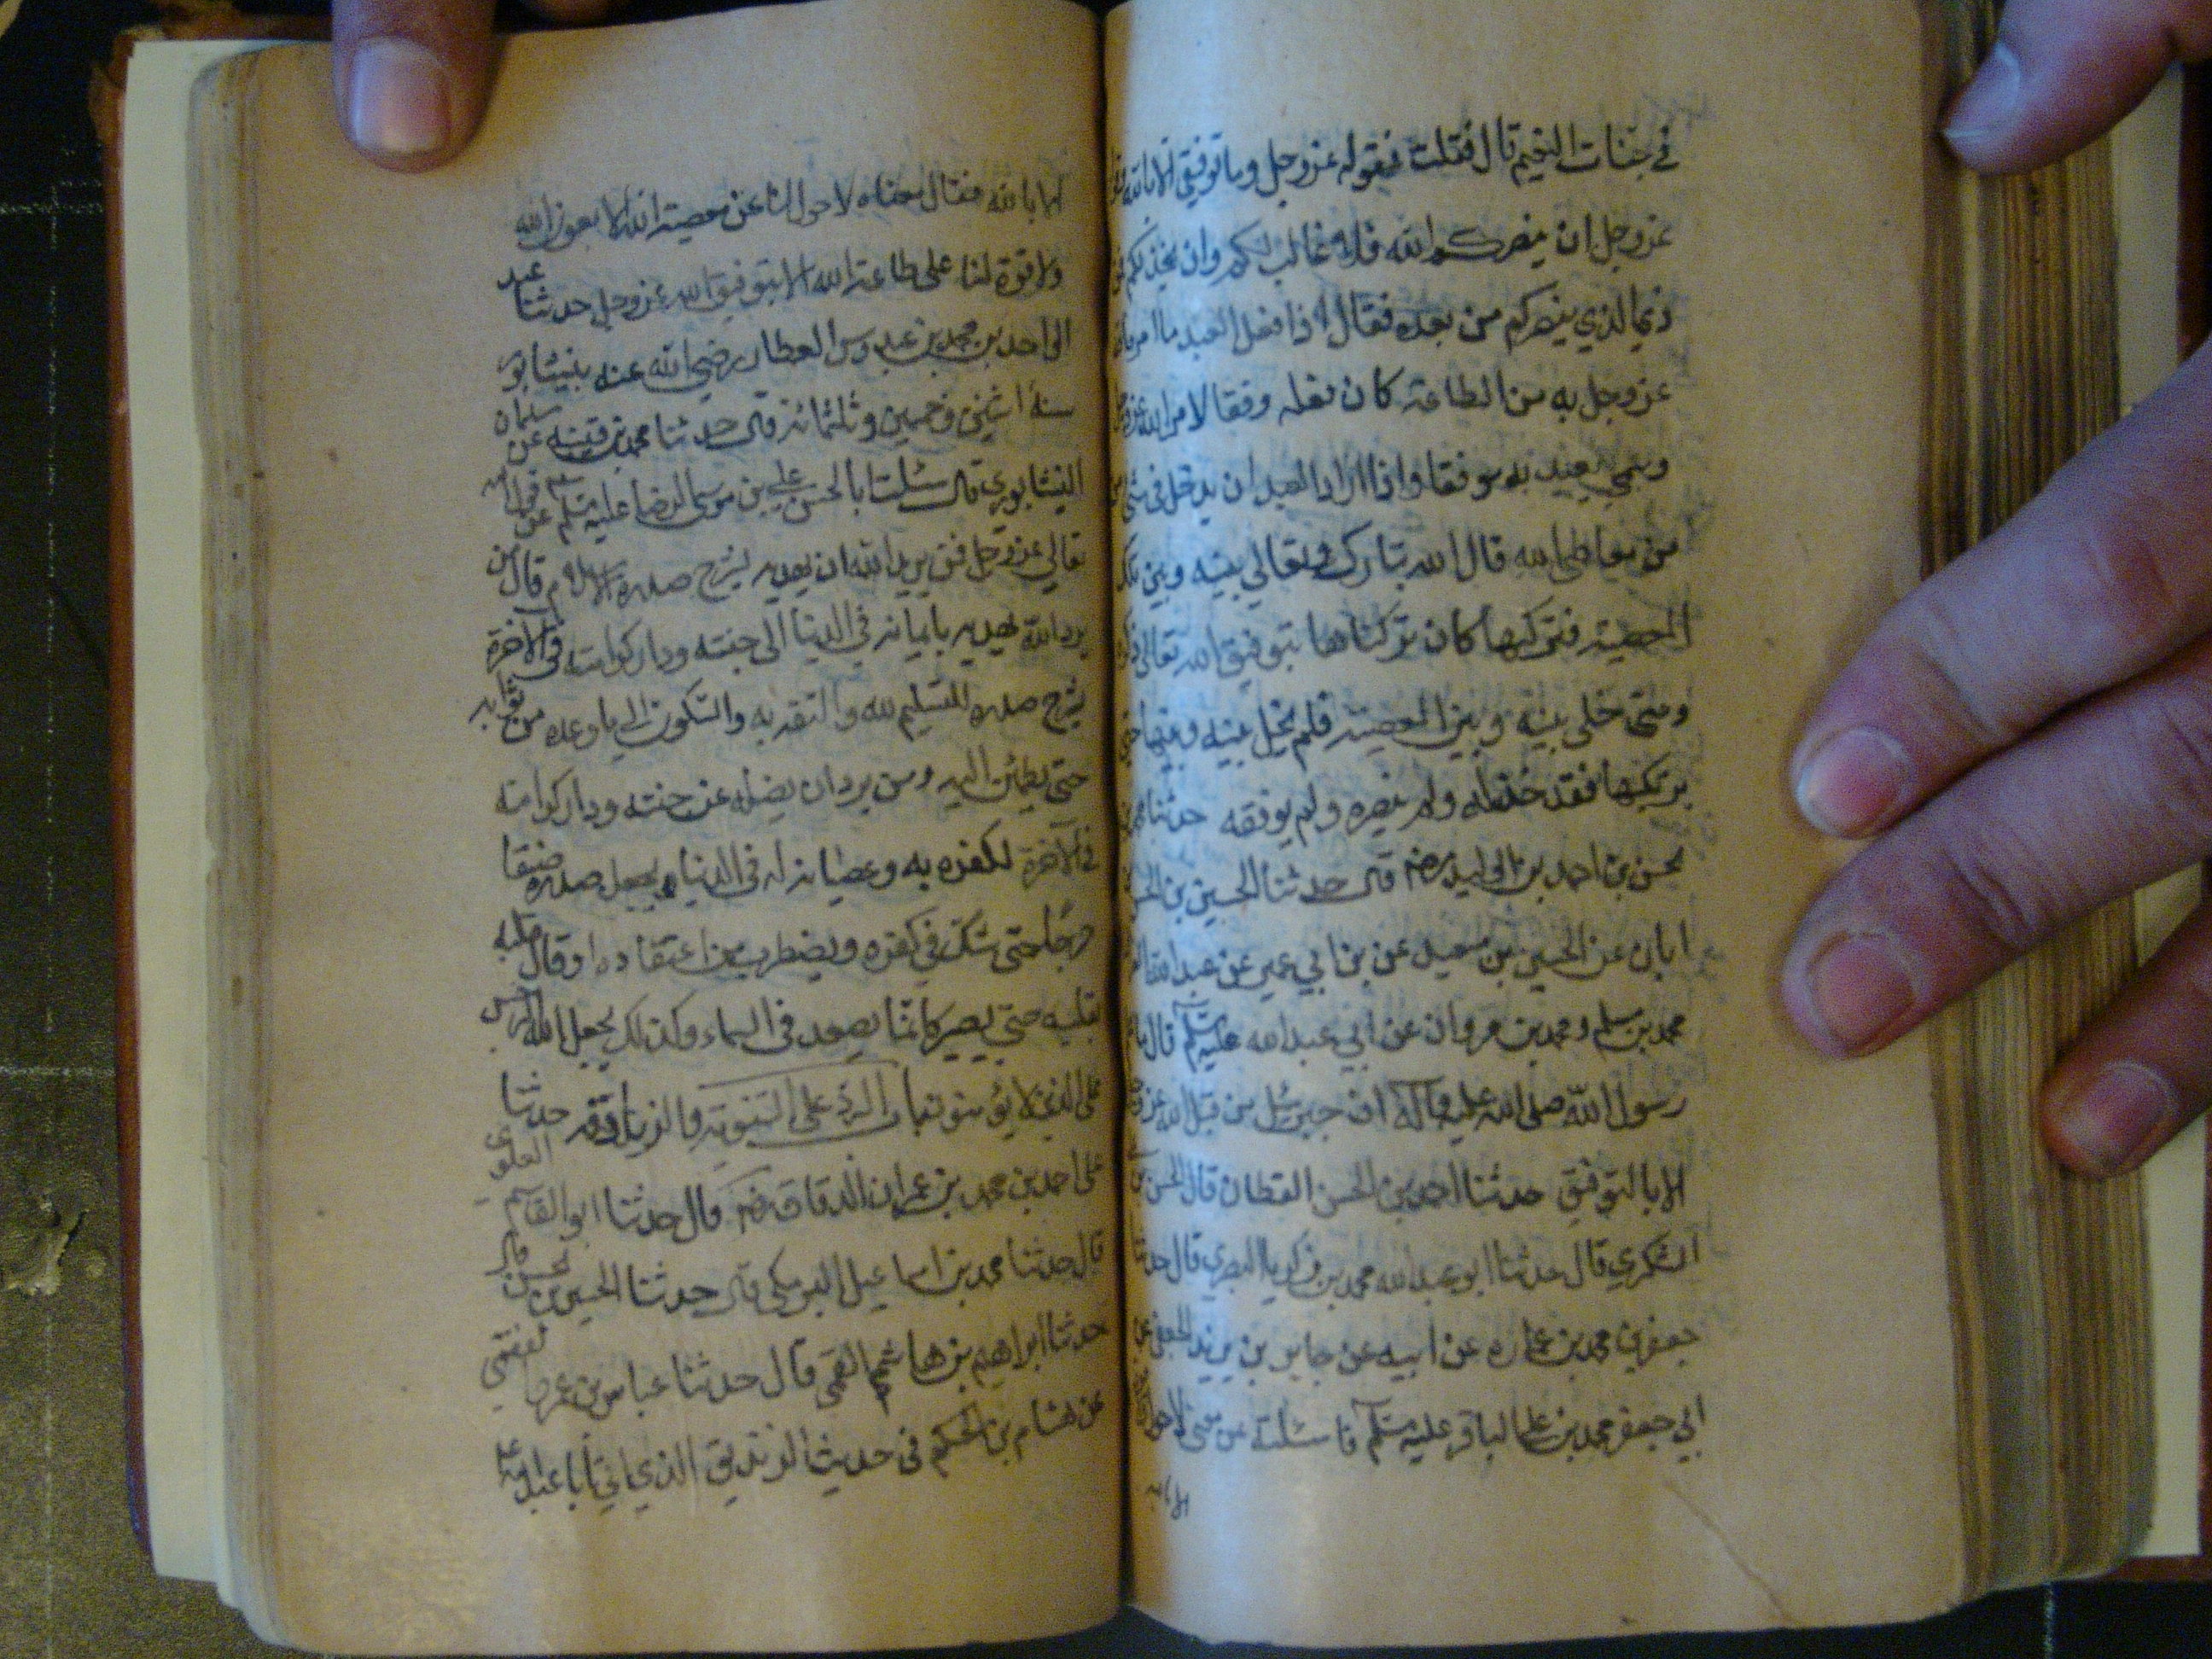 في جنات النعيم قال فقلت فقوله عز وجل وما توفيقي الا بالله
عز وجل ان ينصركم الله فلا غالب لكم وان يخذلكم
ذي الذي ينصركم من بعده فقال اذا فعل العبد ما امره
عز وجل به من الطاعة كان فعله وفقا لامر الله عز وجل
وسمي العبد به موفقا واذا اراد العبد ان يدخل في شي
من معاصي الله قال الله تبارك وتعالى بينه وبين تلك
المعصية فتركها كان تركناها بتوفيق الله تعالى
ومتى خلى بينه وبين المعصية فلم يخل بينه وبينها حتى
يرتكبها فقد خذله ولم ينصره ولم يوفقه حدثنا
الحسن بن احمد بن الوليد رضه قال حدثنا الحسين بن الحسن
ابان عن الحسين بن سعيد عن بن ابي عمير عن عبد الله
محمد بن مسلم ومحمد بن مروان عن ابي عبد الله عليه السلم قال ما
رسول الله صلى الله عليه وآله ان جبرئيل من قبل الله عز وجل
الا بالتوفيق حدثنا احمد بن الحسن القطان قال الحسن بن
السكري قال حدثنا ابو عبد الله محمد بن زكريا البصري قال حدثنا
جعفر بن محمد بن عماره عن ابيه عن جابر بن يزيد الجعفي عن
ابي جعفر محمد بن علي الباقر عليه السلم قا سئلته عن معنى لا حول
الا بالله
الا بالله فقال معناه لا حول لنا عن معصية الله الا بعون الله
ولا قوة لنا على طاعة الله الا بتوفيق الله عز وجل حدثنا عبد
الواحد بن محمد بن عبدوس العطار رضي الله عنه بنيشابور
سنة اثنين وخمسين وثلثمائة قال حدثنا محمد بن قتيبه عن سلمان
النيشابوري قال سئلت ابا الحسن علي بن موسى الرضا عليه السلم عن قول الله
تعالى عز وجل فمن يريد الله ان يهديه يشرح صدره للاسلام قال من
يرد الله يهديه بايمانه في الدنيا الى جنته ودار كرامته في الآخرة
يشرح صدره للتسليم لله والثقة به والسكون الى ما وعده من ثوابه
حتى يطمئن اليه ومن يرد ان يضله عن جنته ودار كرامته
في الآخرة لكفره به وعصيانه له في الدنيا يجعل صدره ضيقا
حرجا حتى يشك في كفره ويضطرب من اعتقاده وقال قلبه
بقلبه حتى يصير كانما يصعد في السماء وكذلك يجعل الله الرجس
على الذين لا يؤمنون باب الرد على الثنوية والزنادقة حدثنا
علي احمد بن محمد بن عمران الدقاق رضه قال حدثنا ابو القاسم العلوي
قال حدثنا محمد بن اسماعيل البرمكي قال حدثنا الحسين بن الحسن قال
حدثنا ابراهيم بن هاشم القمي قال حدثنا عباس بن عمر الفقيمي
عن هشام بن الحكم في حديث الزنديق الذي اتي ابا عبد الله ع